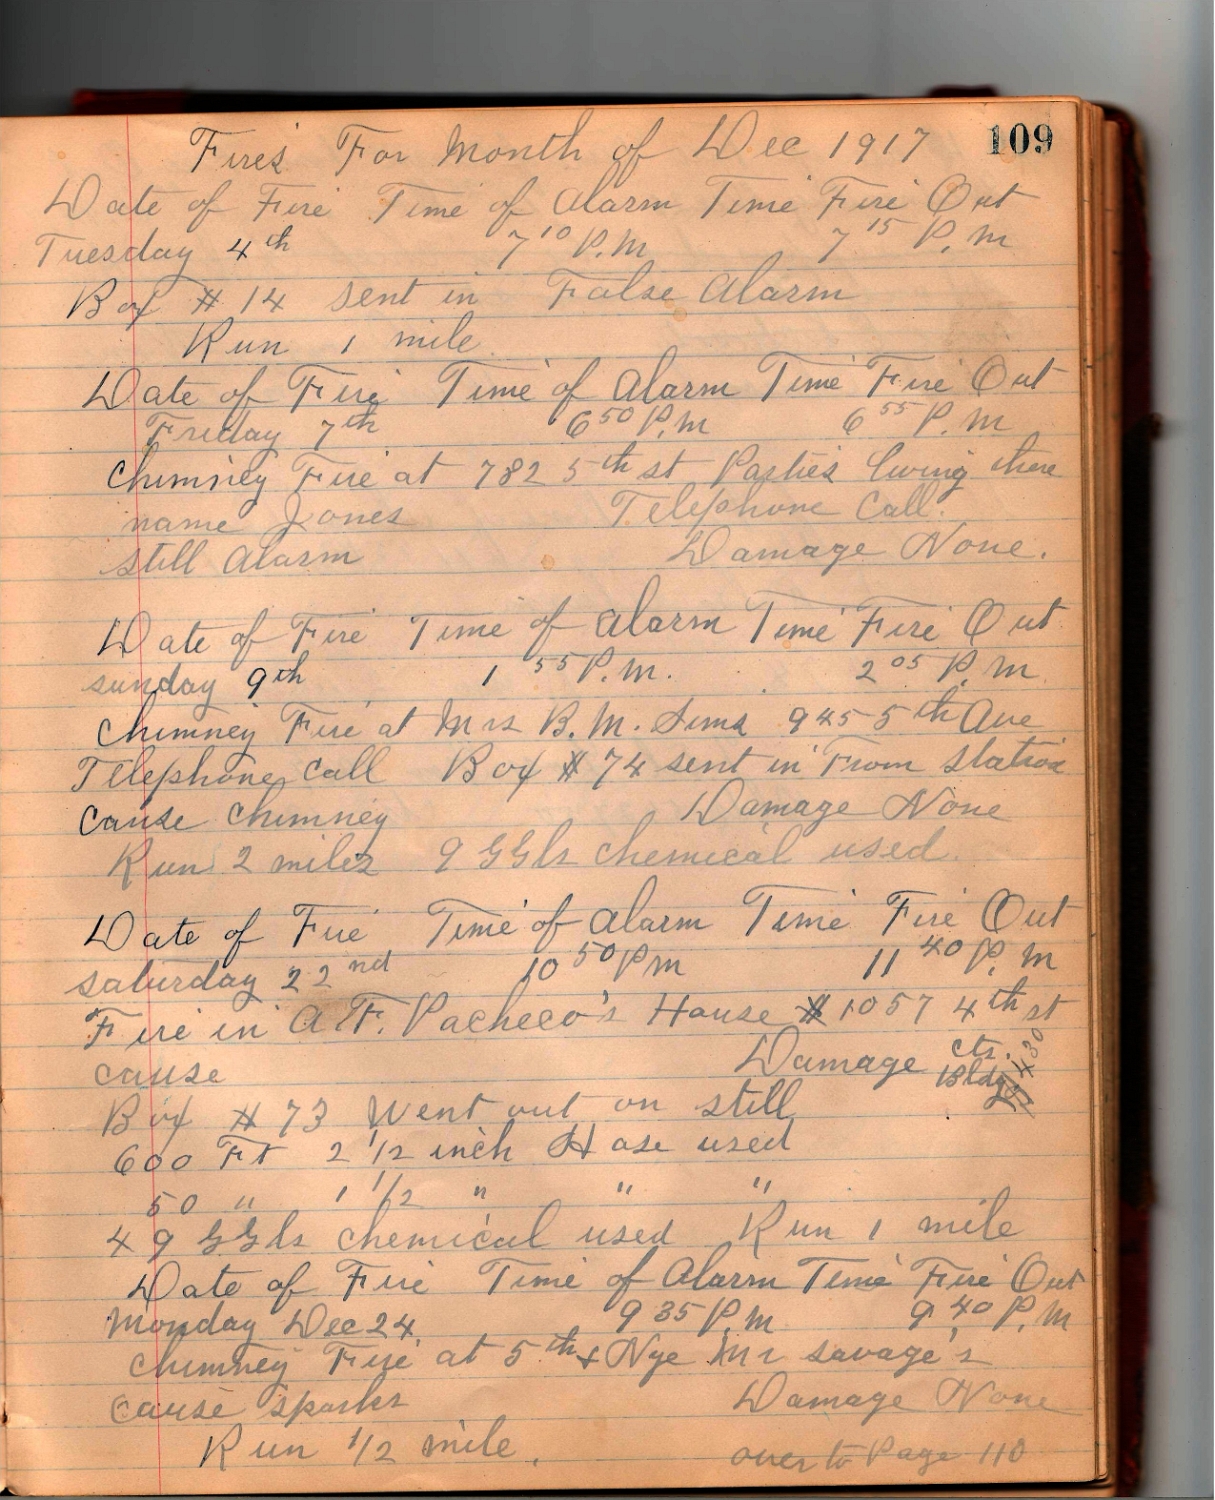 109
Fires For Month of Dec 1917
Date of Fire Time of Alarm Time Fire Out
Tuesday 4th 7 10 P.M 7 15 P.M
Box # 14 sent in False Alarm
Run 1 mile
Date of Fire Time of Alarm Time Fire Out
Friday 7th 6 50 P.M 6 55 P.M
Chimney Fire at 782 5th st Parties living there
name Jones Telephone Call.
still Alarm Damage None.
Date of Fire Time of Alarm Time Fire Out
sunday 9th 1 55 P.M. 2 05 P.M
Chimney Fire at Mrs B.M. Sims 945 5th Ave
Telephone Call Box # 74 sent in From Station
Cause Chimney Damage None
Run 2 miles 9 GGls chemical used.
Date of Fire Time of Alarm Time Fire Out
saturday 22nd 10 50 PM 11 40 P.M
Fire in A.F. Pacheco's House # 1057 4th st
cause Damage cts. Bldg 430
Box # 73 Went out on still
600 Ft 2 1/2 inch Hose used
50 " 1 1/2 " " "
49 GGls chemical used Run 1 mile
Date of Fire Time of Alarm Time Fire Out
Monday Dec 24 9 35 P.M 9 40 P.M
Chimney Fire at 5th & Nye Mr Savage's
cause sparks Damage None
Run 1/2 mile. over to Page 110